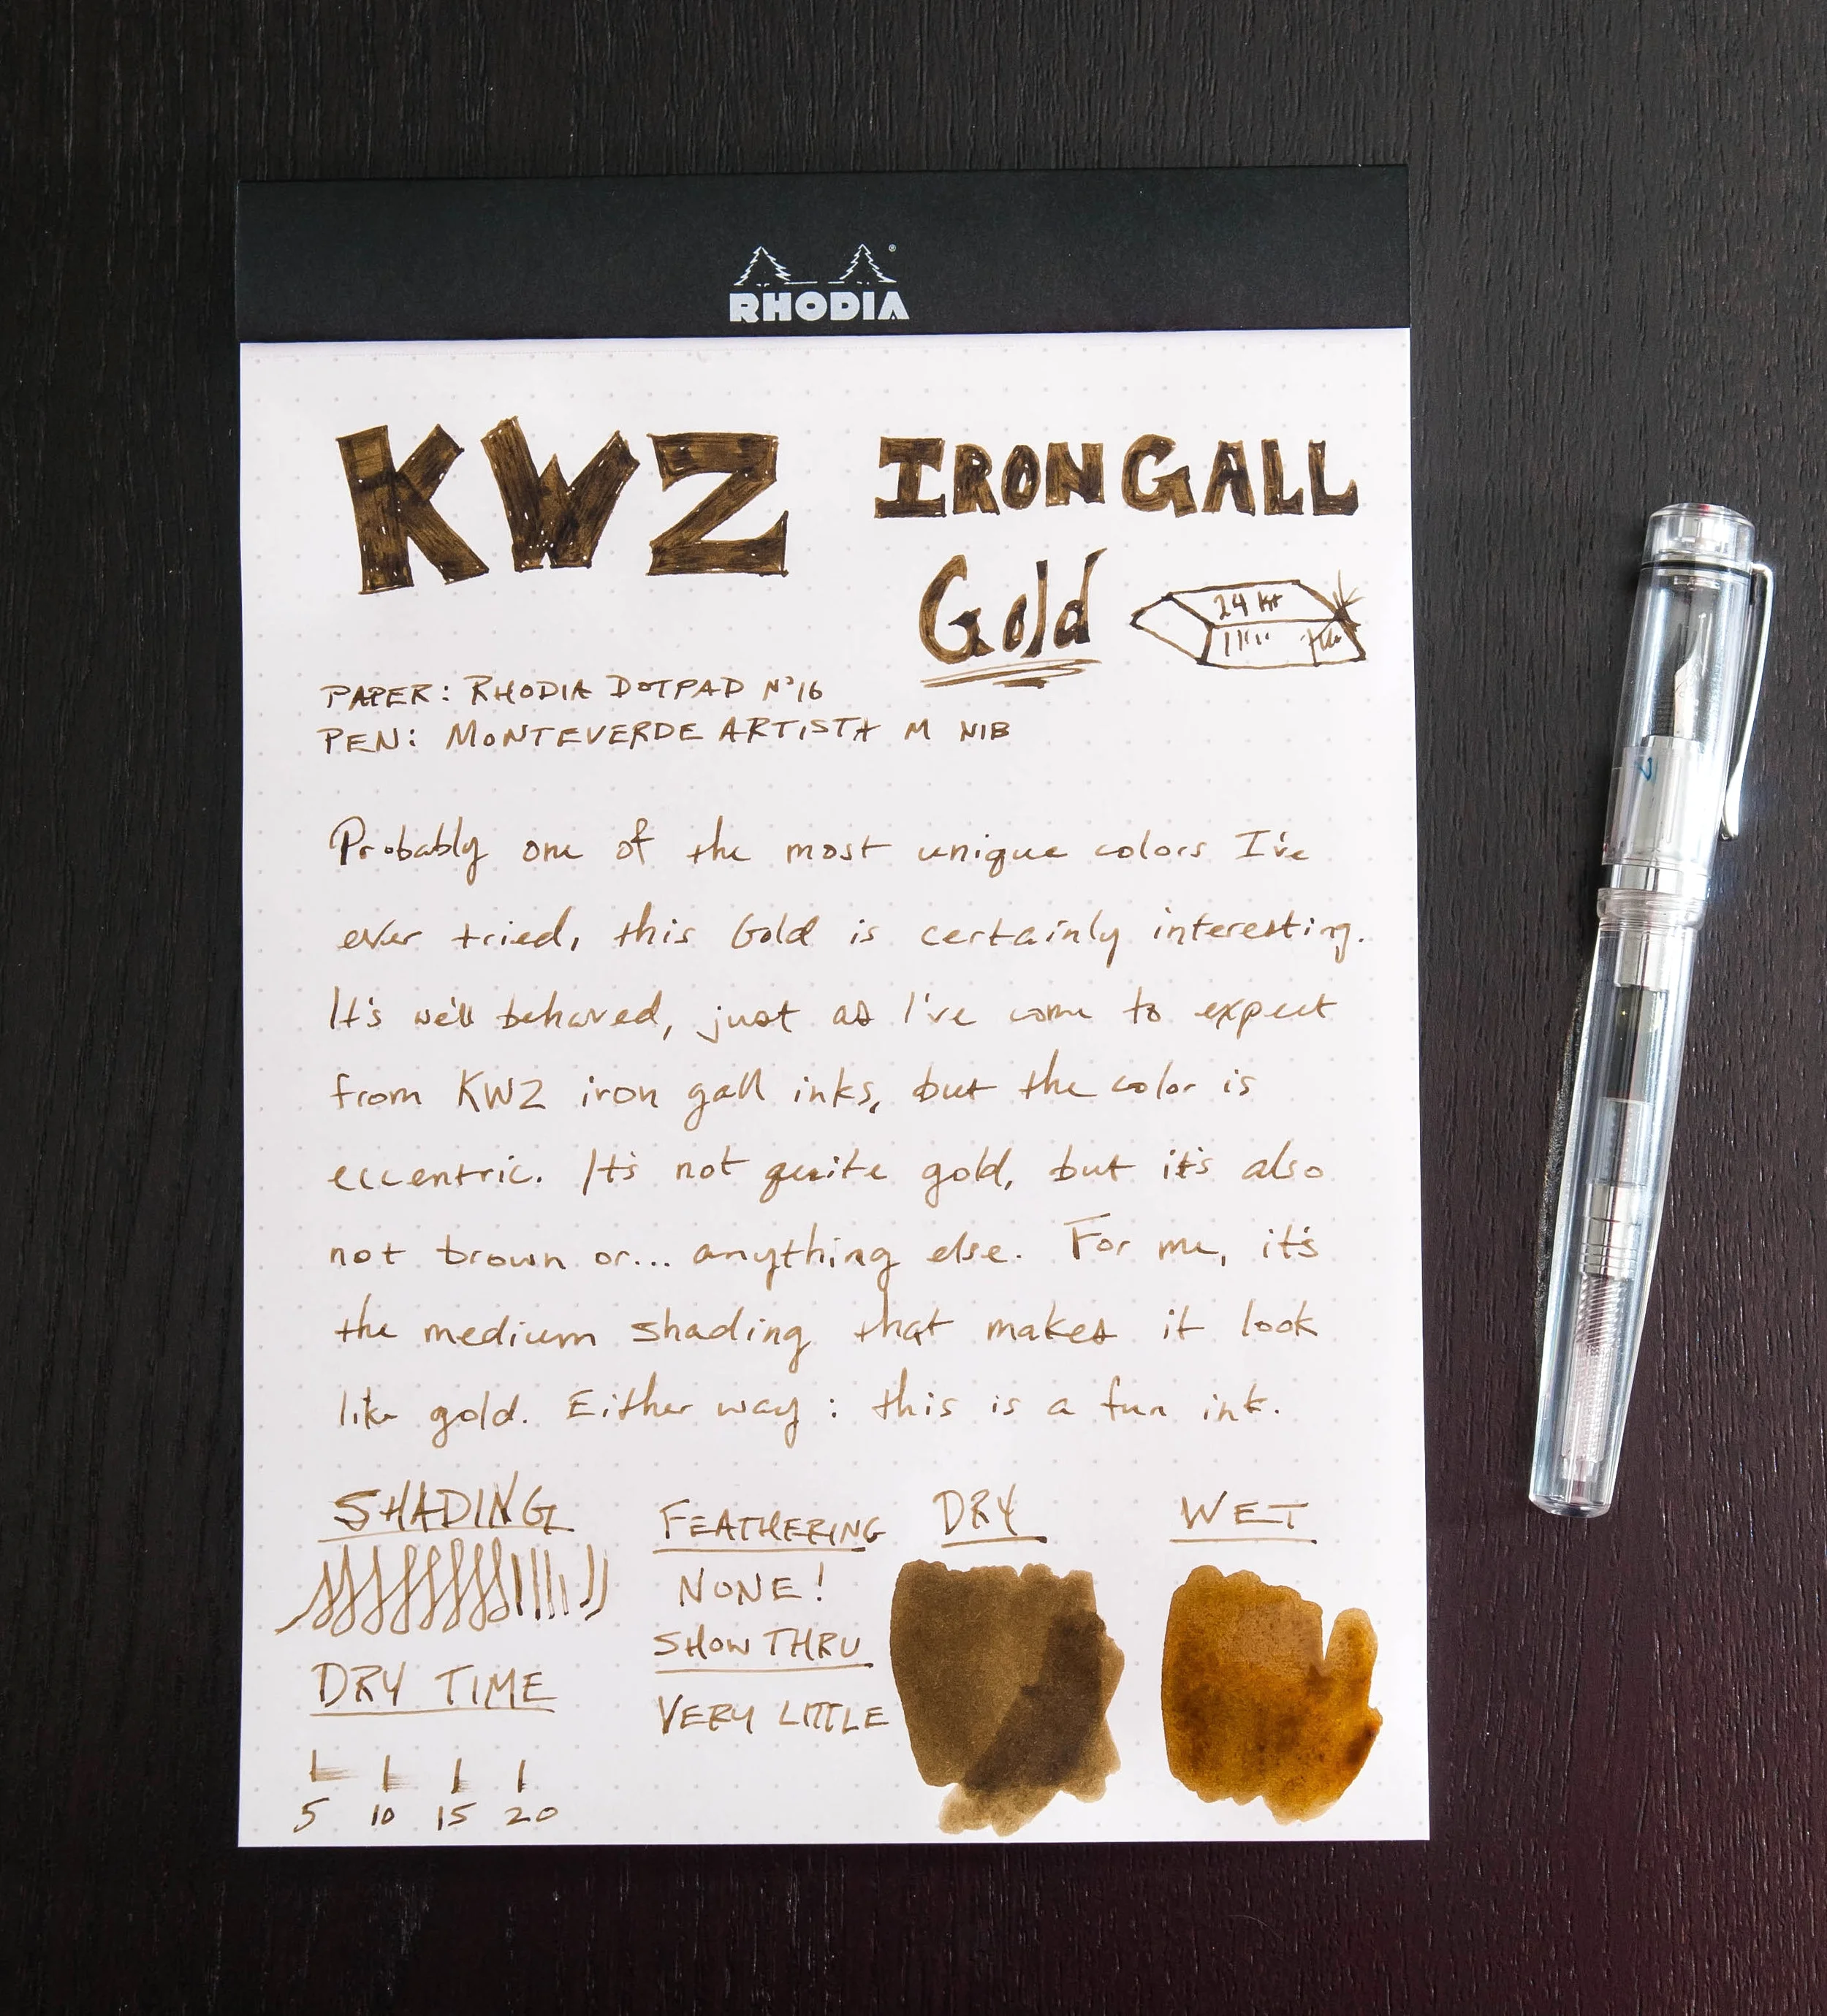 RHODIA
KWZ IRON GALL
Gold
24 kt
PAPER: RHODIA DOTPAD Nº16
PEN: MONTEVERDE ARTISTA M NIB
Probably one of the most unique colors I've
ever tried, this Gold is certainly interesting.
It's well behaved, just as I've come to expect
from KWZ iron gall inks, but the color is
eccentric. It's not quite gold, but it's also
not brown or... anything else. For me, it's
the medium shading that makes it look
like gold. Either way: this is a fun ink.
SHADING
DRY TIME
5 10 15 20
FEATHERING
NONE!
SHOW THRU
VERY LITTLE
DRY
WET